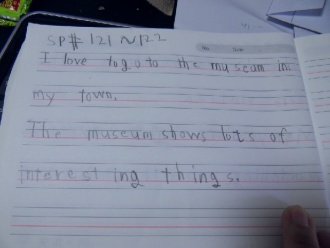 SP# 121 ~ 122
I love to go to the museum in
my town.
The museum shows lots of
interesting things.